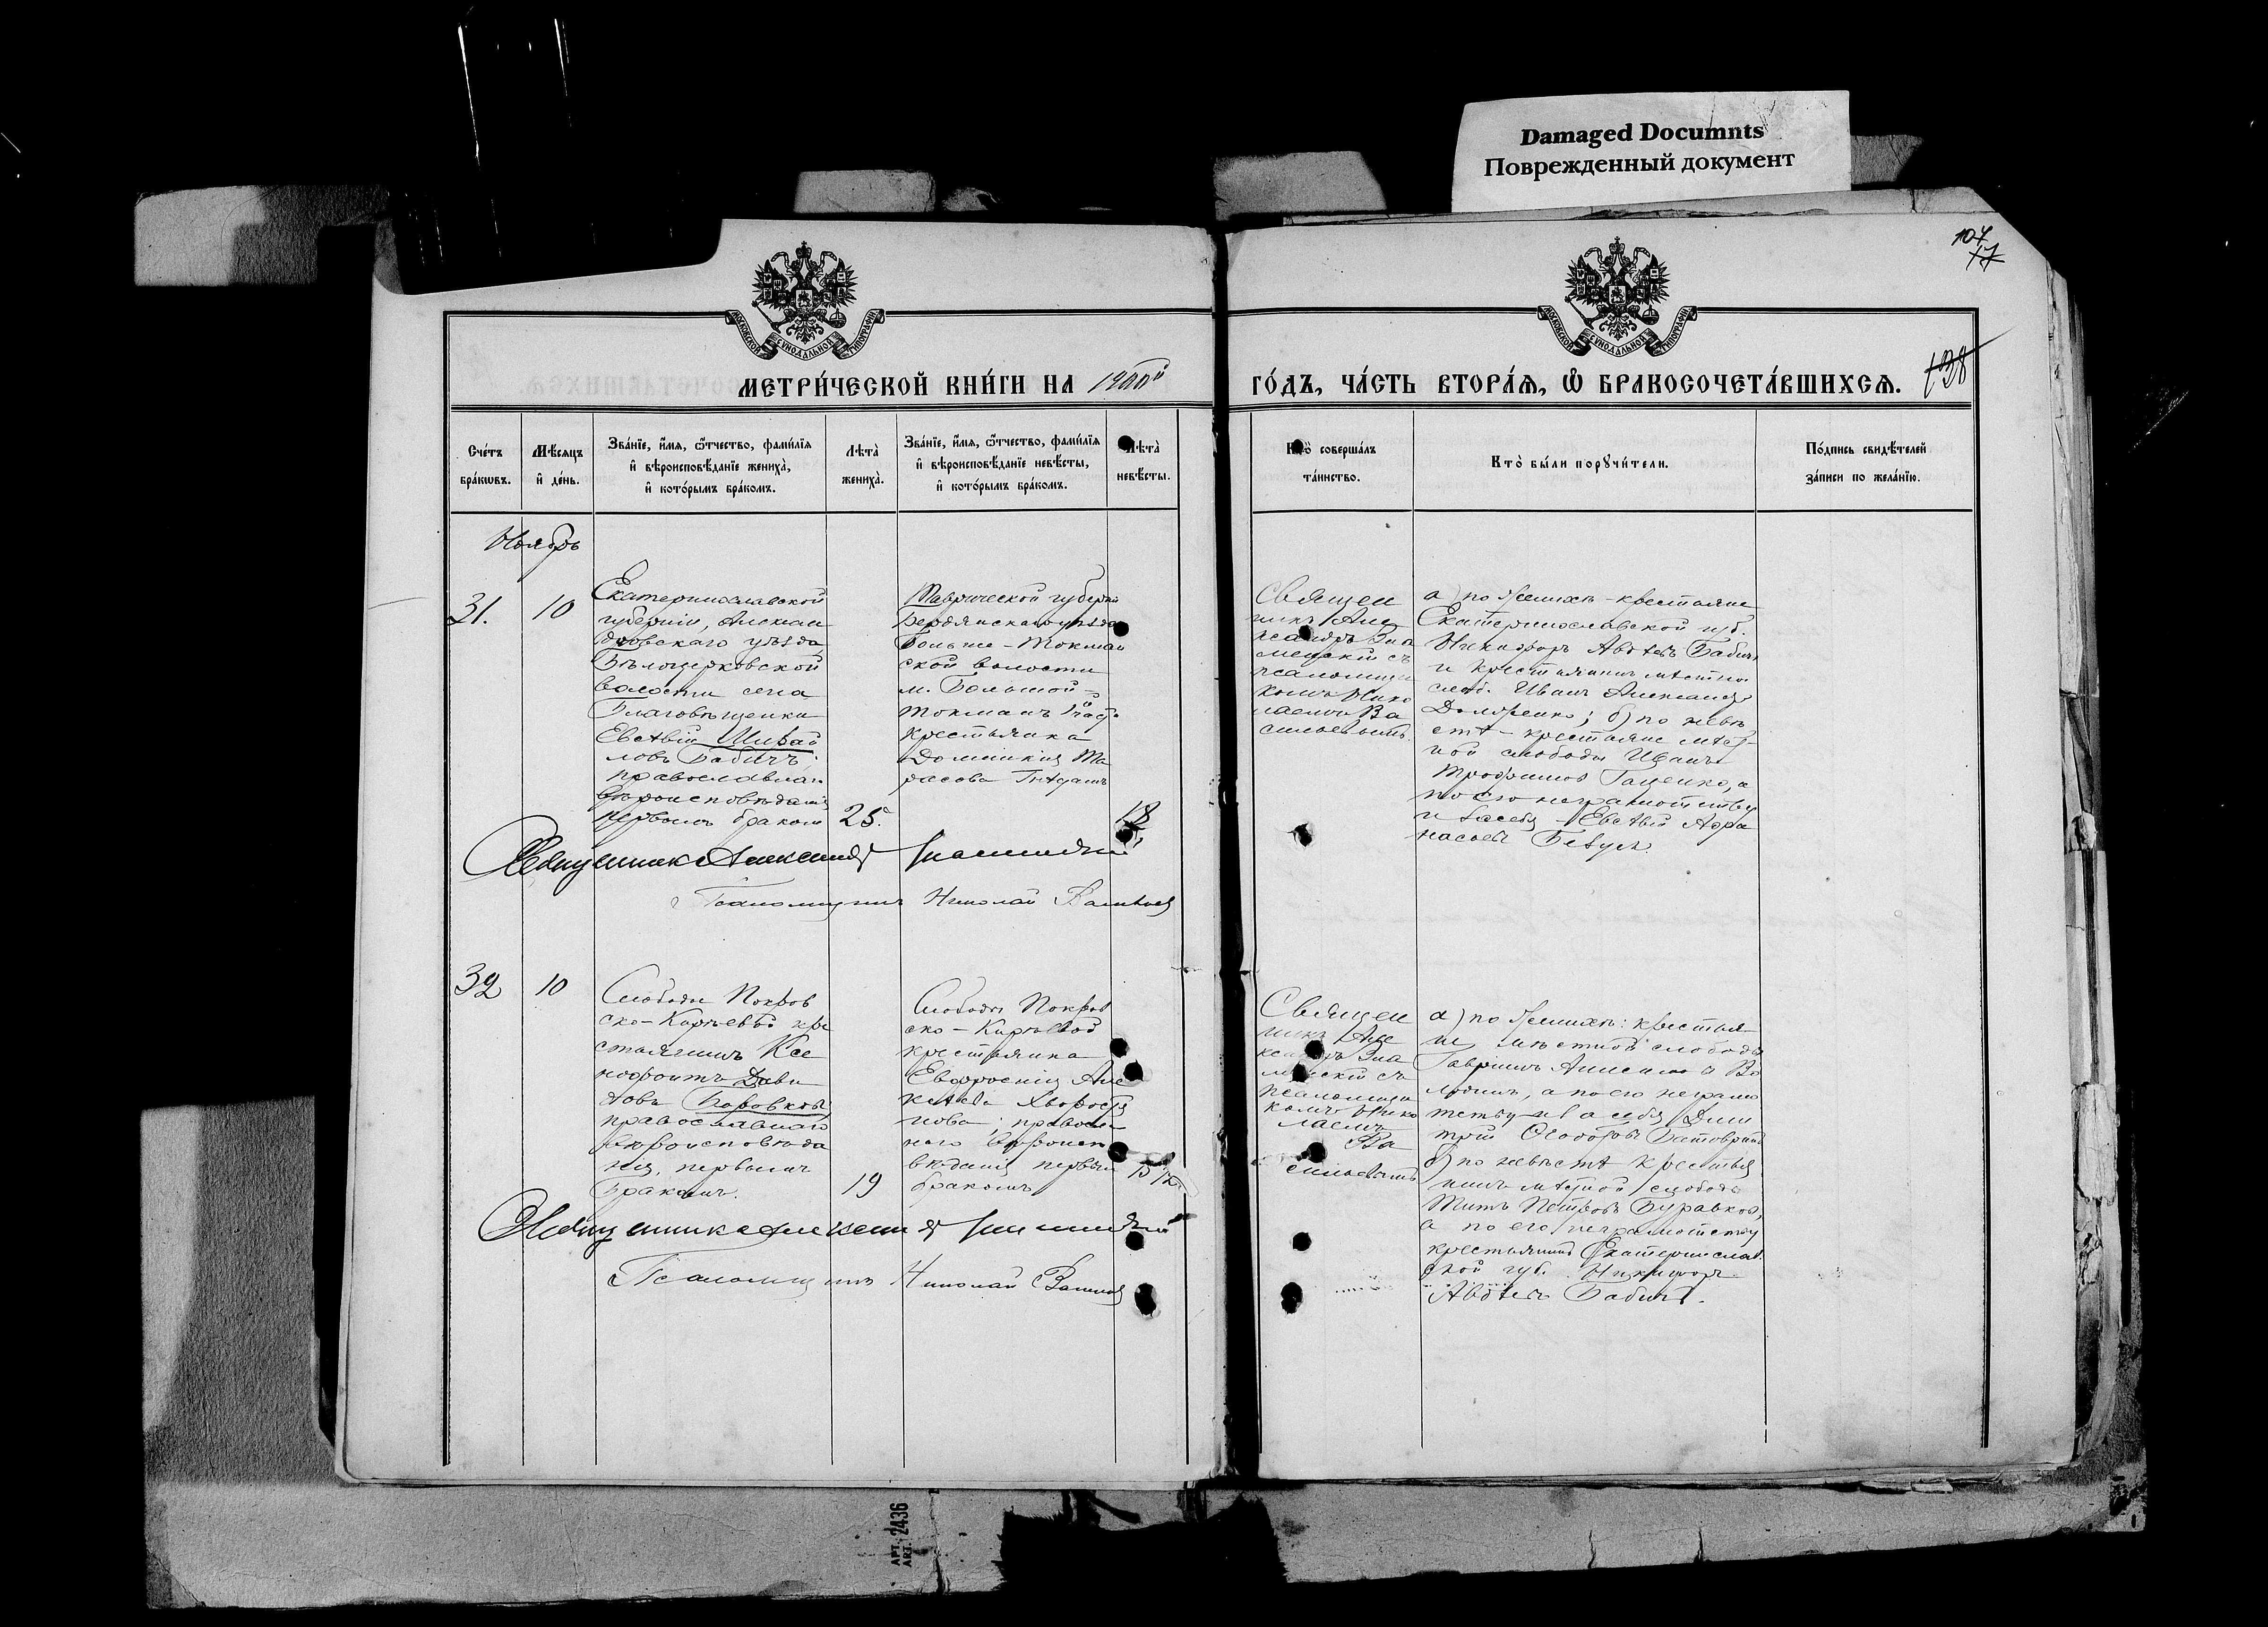 Damaged Documnts
Поврежденный документ
104
17
138
МОСКОВСКОЙ СѴНОДАЛЬНОЙ ТИПОГРАФІИ
МОСКОВСКОЙ СѴНОДАЛЬНОЙ ТИПОГРАФІИ
МЕТРИ́ЧЕСКОЙ КНИ́ГИ НА 1900й
ГО́ДЪ, ЧА́СТЬ ВТОРА́Ѧ, Ѡ БРАКОСОЧЕТА́ВШИХСѦ.
Сче́тъ
бра́кѡвъ.
Мѣ́сяцъ
и҆ де́нь.
Зва́нїе, и҆́мѧ, ѻ҆́тчество, фами́лїѧ
и҆ вѣроисповѣ́данїе жениха̀,
и҆ кото́рымъ бра́комъ.
Лѣта̀
жениха̀.
Зва́нїе, и҆́мѧ, ѻ҆́тчество, фами́лїѧ
и҆ вѣроисповѣ́данїе невѣ́сты,
и҆ кото́рымъ бра́комъ.
Лѣта̀
невѣ́сты.
Кто̀ соверша́лъ
та́инство.
Кто̀ бы́ли порꙋчи́тели.
По́дпись свидѣ́телей
за́писи по жела́нїю.
Ноябрь
31.
10
Екатеринославской
губерніи, Алексан
дровскаго уѣзда
Бѣлоцерковской
волости села
Благовѣщенки
Евсѣвій Михай
ловъ Бабичъ,
православнаго
вѣроисповѣданія
первымъ бракомъ
25.
Таврической губерніи
Бердянскаго уѣзда
Больше-Токмак
ской волости
м. Большой-
Токмакъ
крестьянка
Доминикія Та
расова
18
Священ
никъ Але
ксандръ
съ
псаломщи
комъ Нико
лаемъ Ва
сильевымъ.
а) по женихѣ - крестьяне
Екатеринославской губ.
Никифоръ Авдѣевъ Бабичъ
и крестьянинъ мѣстной
слоб. Иванъ
б) по невѣ
стѣ - крестьяне мѣст-
ной слободы Иванъ
Трофимовъ Гаценко, а
по его неграмотству
и за себя Евсѣвій Афа
насьевъ
Священникъ Александръ
Псаломщикъ Николай Васильевъ
32
10
Слободы Покров
ско-Кирѣевой кре
стьянинъ Ксе
нофонтъ Дави
довъ Боровковъ
православнаго
вѣроисповѣда
нія, первымъ
бракомъ.
19
Слободы Покров
ско-Кирѣевой
крестьянка
Евфросинія Але
ксѣева Хворостя
нова, православ
наго вѣроисп
вѣданія первымъ
бракомъ
Священ
никъ Але
ксандръ
съ
псаломщи
комъ Нико
лаемъ
Ва
сильевымъ
а) по женихѣ: крестья
не мѣстной слободы
Гавріилъ Анисимовъ Во
лодинъ, а по его неграмо
тству и за себя Дми
трій
б) по невѣстѣ крестья
нинъ мѣстной слободы
Титъ Петровъ Буравковъ,
а по его неграмотству
крестьянинъ Екатеринослав
ской губ. Никифоръ
Авдѣевъ Бабичъ.
Священникъ Александръ
Псаломщикъ Николай Васильевъ
АРТ. 2436
ART.